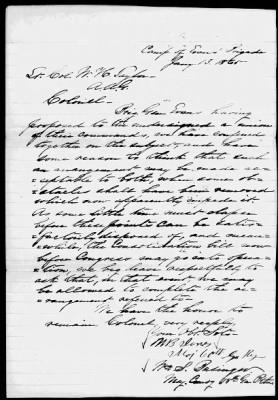 Camp of Evans' Brigade
Jany 15. 1865
Lt. Col. W. H. Taylor
A.A.G.
Colonel-
Brig Gen Evans having
proposed to the undersigned a union
of their commands, we have conferred
together on the subject, and have
some reason to think that such
an arrangement may be made ac-
-ceptable to both, when some ob-
-stacle shall have been removed
which now apparently impedes it.
As some little time must elapse
before these points can be satis-
-factorily disposed of, and mean-
-while, the Consolidation bill now
before Congress may go into opera-
-tion, we beg leave respectfully to
ask that, in that event we may
be allowed to complete the ar-
-rangement referred to.
We have the honor to
remain Colonel, very respty,
Your Obt. Svts.
Maj
Maj. Comdg